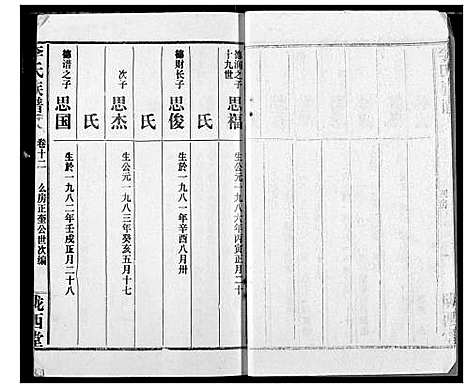 十九世
德润之子 思福
生公元一九八六年丙寅正月二十
氏
德财长子 思俊
生於一九八一年辛酉八月卅
氏
次子 思杰
生公元一九八三年癸亥五月十七
氏
德湝之子 思国
生於一九八二年壬戌正月二十八
李氏族谱 卷十二 么房正奎公世次编 陇西堂